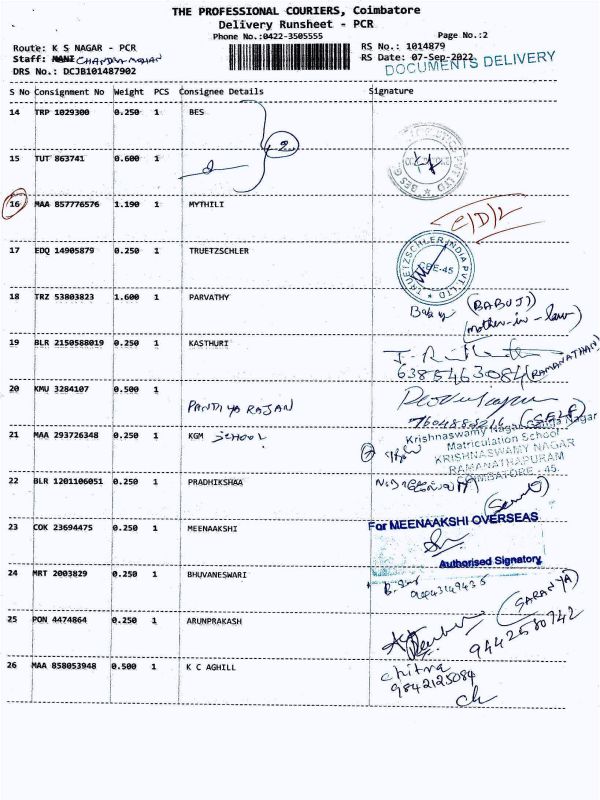 THE PROFESSIONAL COURIERS, Coimbatore
Delivery Runsheet - PCR
Phone No.:0422-3505555
Page No.:2
Route: K S NAGAR - PCR
RS No.: 1014879
Staff: MANI CHANDRA MOHAN
RS Date: 07-Sep-2022
DRS No.: DCJB101487902
DOCUMENTS DELIVERY
S No Consignment No Weight PCS Consignee Details Signature
14 TRP 1029300 0.250 1 BES
2
15 TUT 863741 0.600 1
16 MAA 857776576 1.190 1 MYTHILI
C/D/L
17 EDQ 14905879 0.250 1 TRUETZSCHLER
TRUETZSCHLER INDIA PVT. LTD
CBE-45
18 TRZ 53803823 1.600 1 PARVATHY
(BABUJI)
(mother-in-law)
19 BLR 2150588019 0.250 1 KASTHURI
6385463084 (RAMANATHAN)
20 KMU 3284107 0.500 1
PANDIYA RAJAN
(SELF)
21 MAA 293726348 0.250 1 KGM SCHOOL
Krishnaswamy Nagar
Matriculation School
KRISHNASWAMY NAGAR
RAMANATHAPURAM
COIMBATORE - 45.
22 BLR 1201106051 0.250 1 PRADHIKSHAA
23 COK 23694475 0.250 1 MEENAAKSHI
For MEENAAKSHI OVERSEAS
Authorised Signatory
24 MRT 2003829 0.250 1 BHUVANESWARI
25 PON 4474864 0.250 1 ARUNPRAKASH
(SARANYA)
9442580742
26 MAA 858053948 0.500 1 K C AGHILL
chitra
9842125084